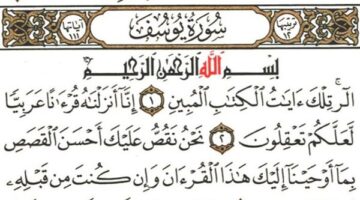 سُورَةُ يُوسُفَ
بِسْمِ ٱللَّهِ ٱلرَّحْمَٰنِ ٱلرَّحِيمِ
الٓر ۚ تِلْكَ ءَايَٰتُ ٱلْكِتَٰبِ ٱلْمُبِينِ ١ إِنَّآ أَنزَلْنَٰهُ قُرْءَٰنًا عَرَبِيًّا
لَّعَلَّكُمْ تَعْقِلُونَ ٢ نَحْنُ نَقُصُّ عَلَيْكَ أَحْسَنَ ٱلْقَصَصِ
بِمَآ أَوْحَيْنَآ إِلَيْكَ هَٰذَا ٱلْقُرْءَانَ وَإِن كُنتَ مِن قَبْلِهِۦ